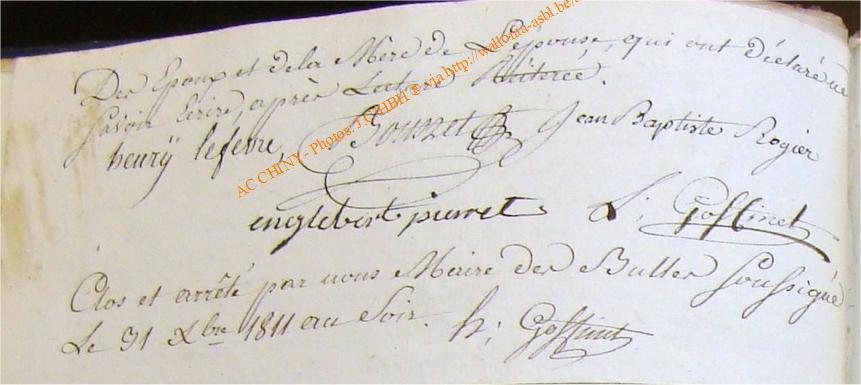 Des Epoux et de la Mère de L'épouse, qui ont déclaré ne
savoir Ecrire, après Lecture Réiterée.
henrÿ lefevre, Jean Baptiste Rogier
englebert pierret L; Goffinet
Clos et arrêté par nous Maire des Bulles soussigné
Le 31 Xbre 1811 au Soir. h; Goffinet
AC CHINY - Photos: JC HBH ® via http://wallonia-asbl.be/